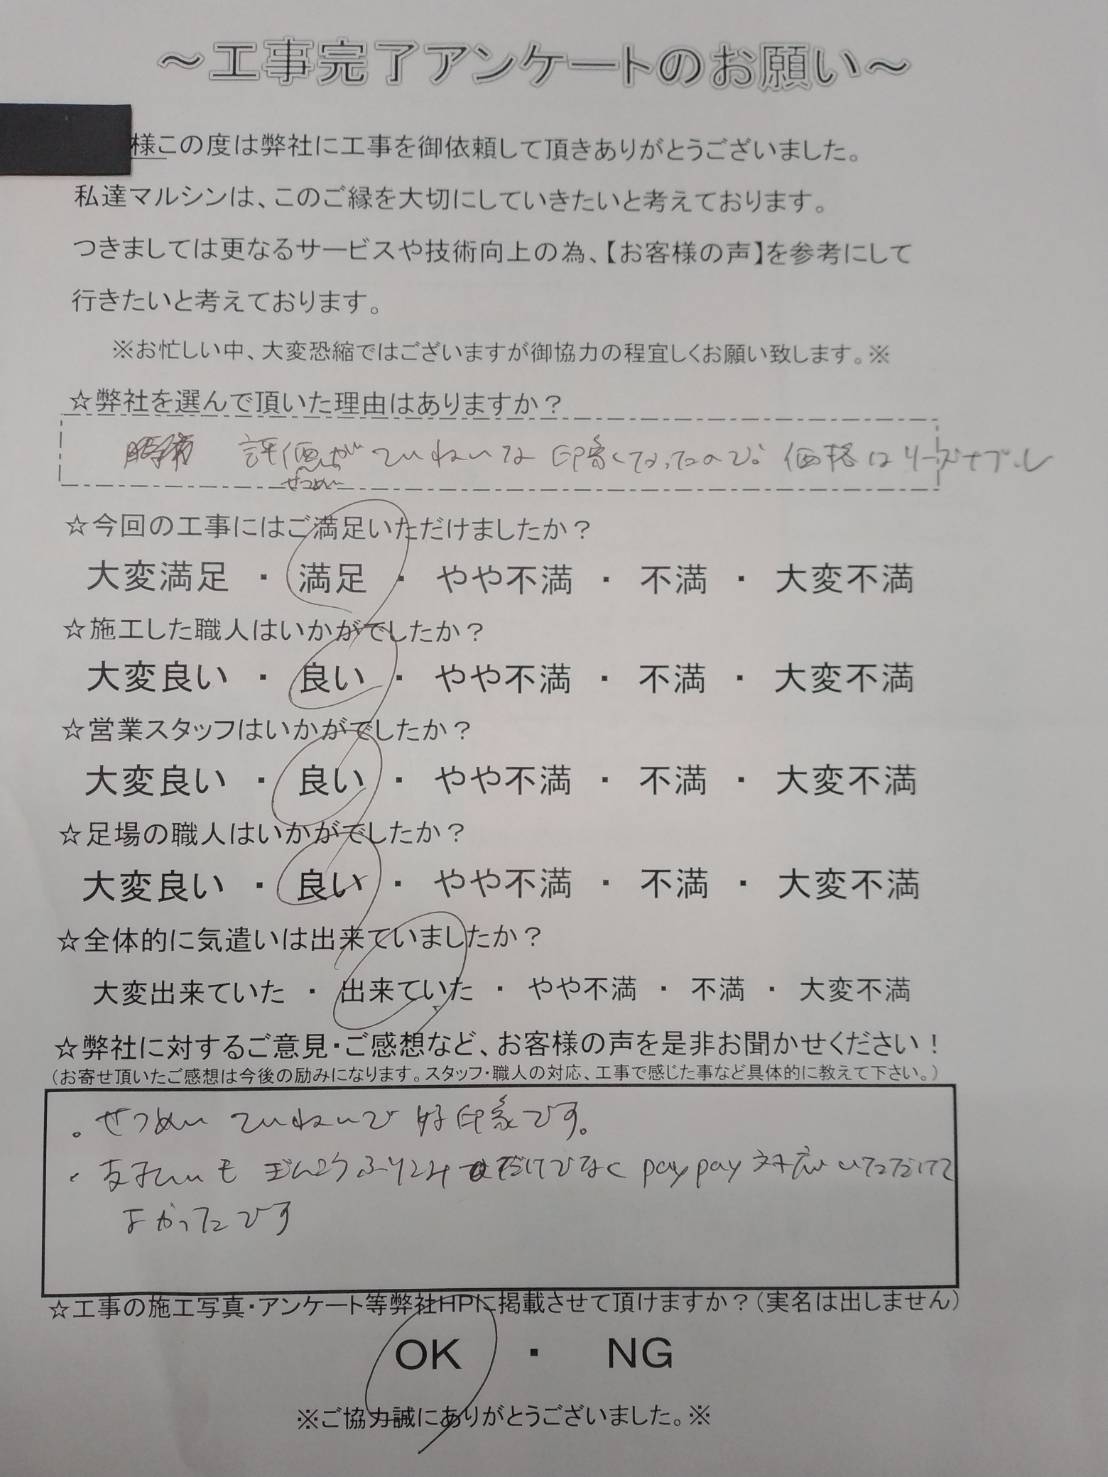 ～工事完了アンケートのお願い～
様この度は弊社に工事を御依頼して頂きありがとうございました。
私達マルシンは、このご縁を大切にしていきたいと考えております。
つきましては更なるサービスや技術向上の為、【お客様の声】を参考にして
行きたいと考えております。
※お忙しい中、大変恐縮ではございますが御協力の程宜しくお願い致します。※
☆弊社を選んで頂いた理由はありますか？
評価がていねいな印象でなったので。価格はリーズナブル
せつめい
☆今回の工事にはご満足いただけましたか？
大変満足 ・ 満足 ・ やや不満 ・ 不満 ・ 大変不満
☆施工した職人はいかがでしたか？
大変良い ・ 良い ・ やや不満 ・ 不満 ・ 大変不満
☆営業スタッフはいかがでしたか？
大変良い ・ 良い ・ やや不満 ・ 不満 ・ 大変不満
☆足場の職人はいかがでしたか？
大変良い ・ 良い ・ やや不満 ・ 不満 ・ 大変不満
☆全体的に気遣いは出来ていましたか？
大変出来ていた ・ 出来ていた ・ やや不満 ・ 不満 ・ 大変不満
☆弊社に対するご意見・ご感想など、お客様の声を是非お聞かせください！
（お寄せ頂いたご感想は今後の励みになります。スタッフ・職人の対応、工事で感じた事など具体的に教えて下さい。）
。せつめい ていねいで 好印象です。
・支払いも ぎんこうふりこみだけでなく paypay 対応いただけて
よかったです
☆工事の施工写真・アンケート等弊社HPに掲載させて頂けますか？（実名は出しません）
OK ・ NG
※ご協力誠にありがとうございました。※